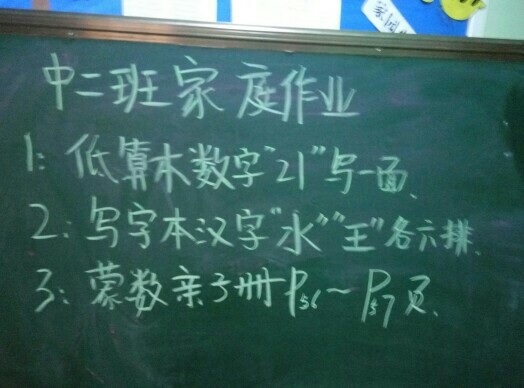 中二班家庭作业
1: 低算本数字"21"写一面、
2: 写字本汉字"水""王"各六排、
3: 蒙数亲子册P56~P57页、